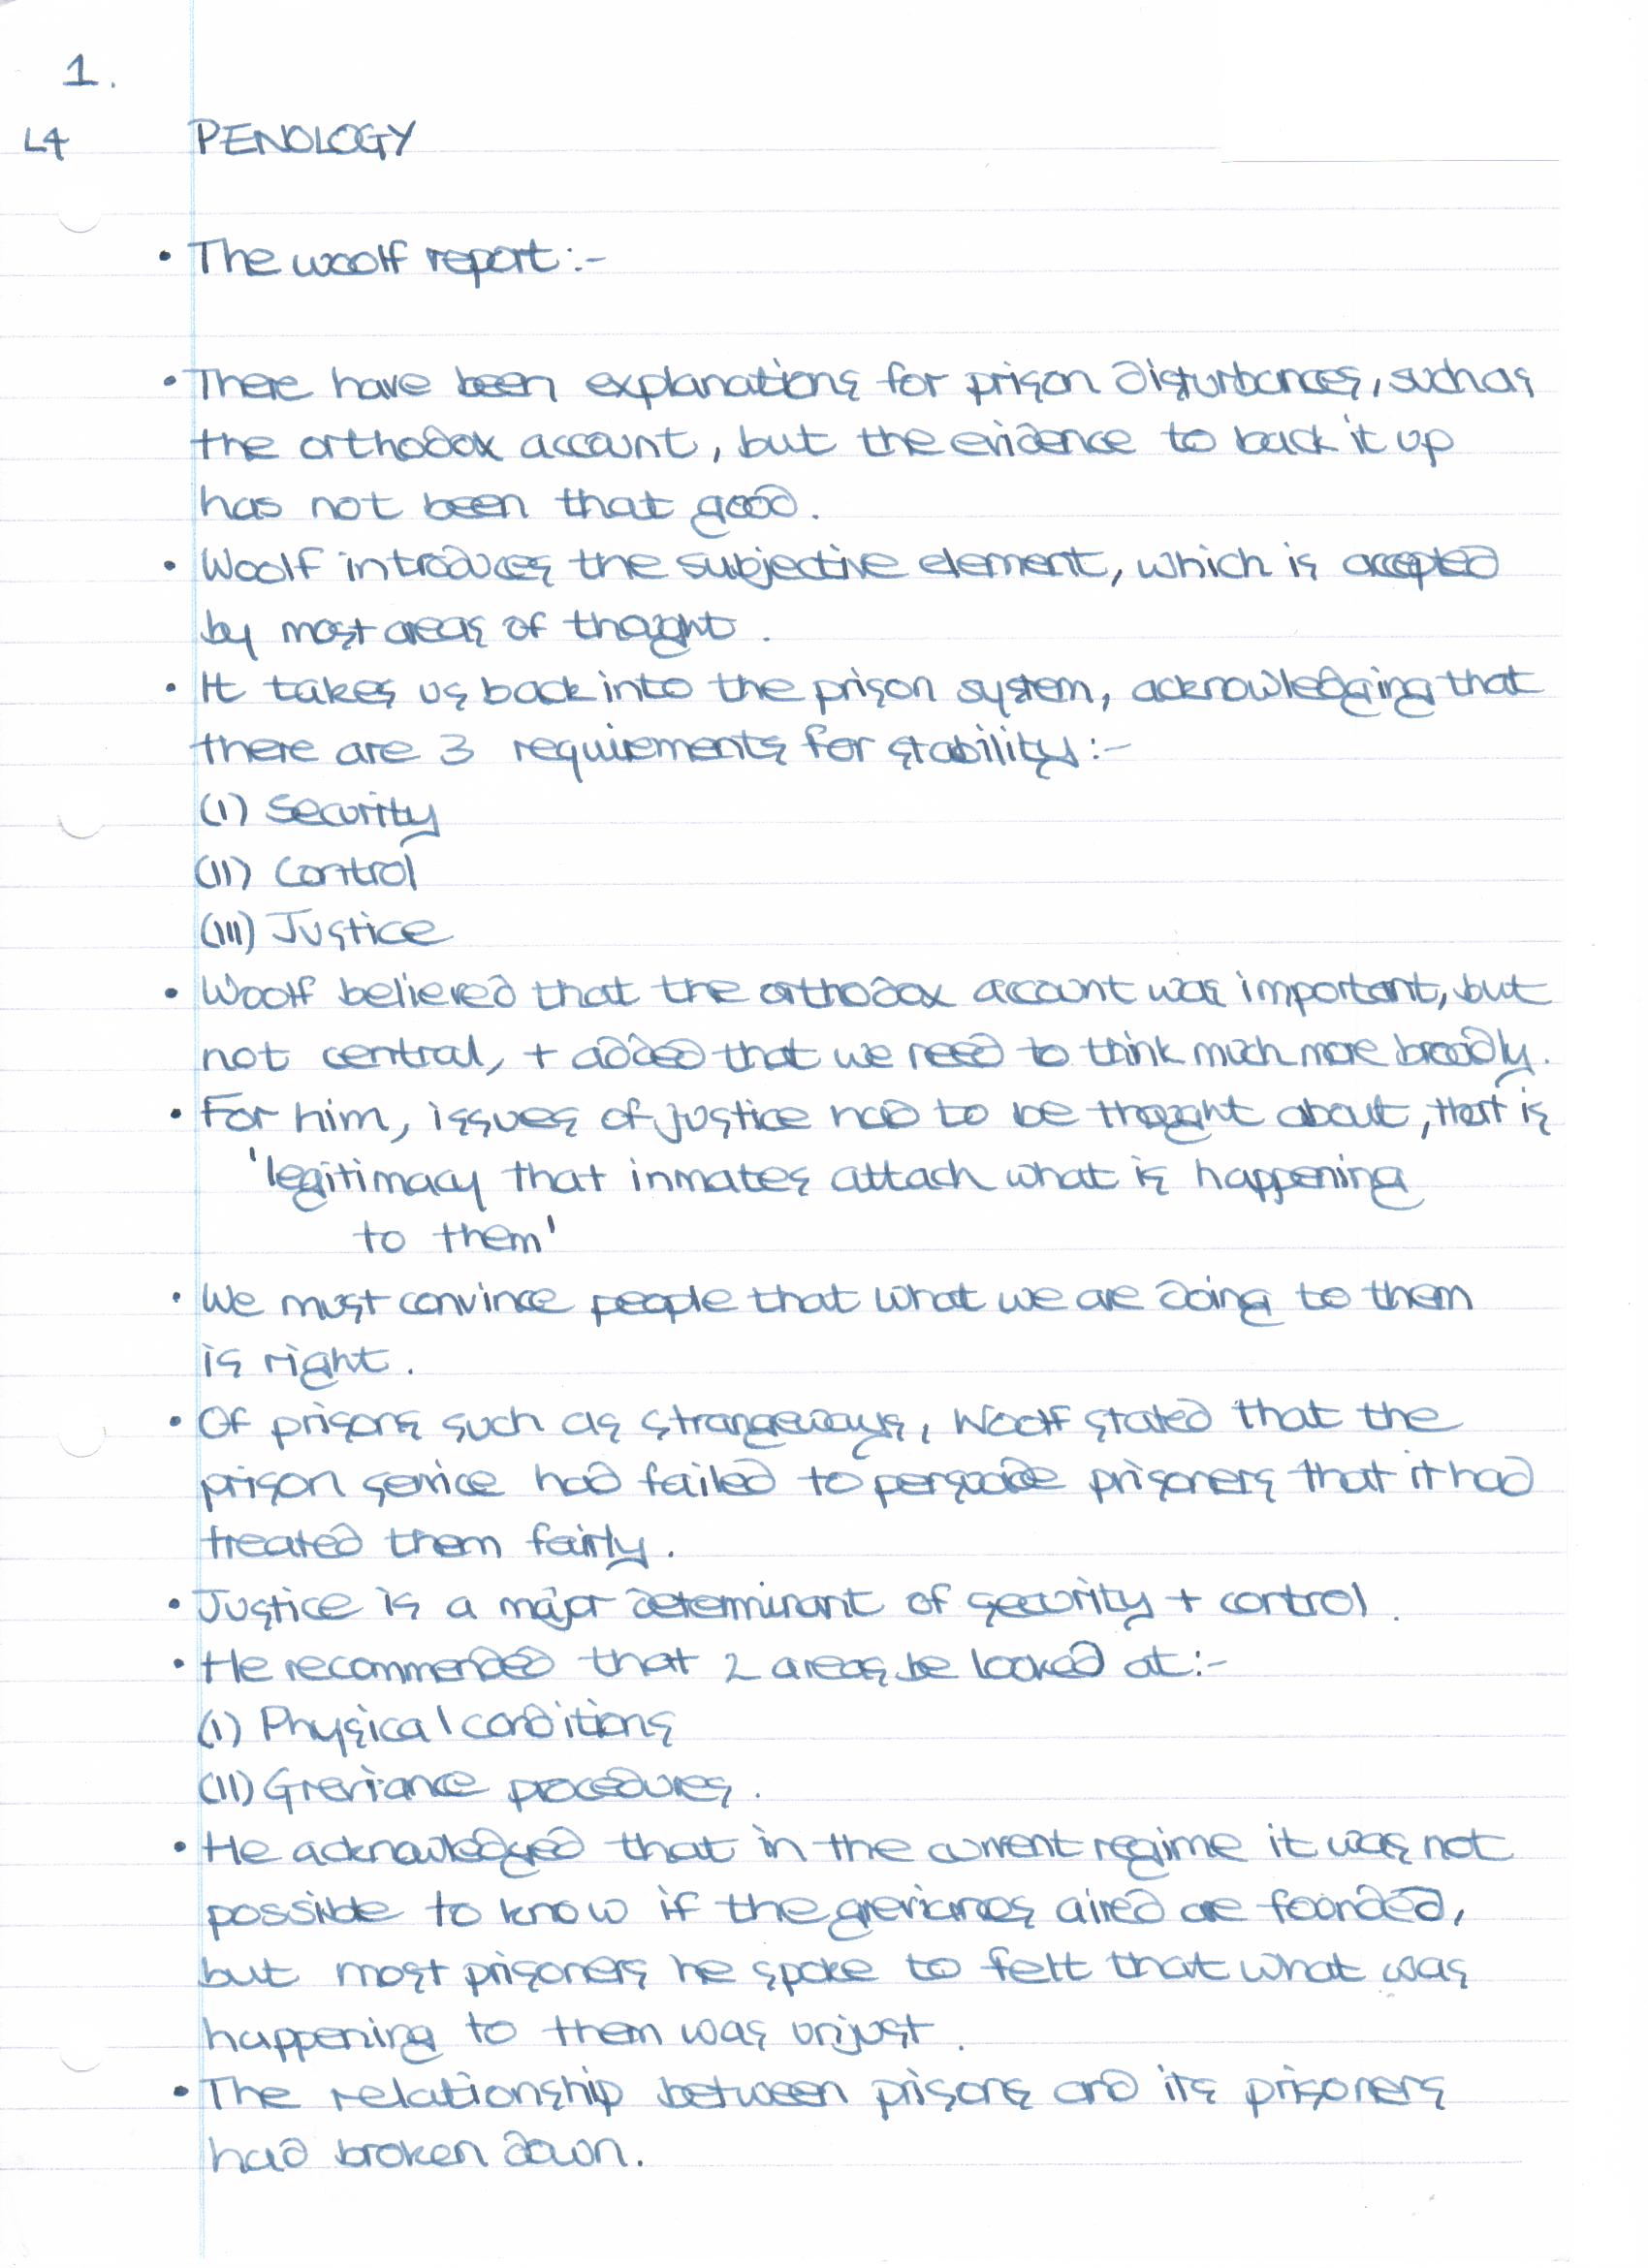 1.
L4 PENOLOGY
• The woolf report:-
• There have been explanations for prison disturbances, such as
the orthodox account, but the evidence to back it up
has not been that good.
• Woolf introduces the subjective element, which is accepted
by most areas of thought.
• It takes us back into the prison system, acknowledging that
there are 3 requirements for stability:-
(I) Security
(II) Control
(III) Justice
• Woolf believed that the orthodox account was important, but
not central, + added that we need to think much more broadly.
• For him, issues of justice had to be thought about, that is
'legitimacy that inmates attach what is happening
to them'
• We must convince people that what we are doing to them
is right.
• Of prisons such as Strangeways, Woolf stated that the
prison service had failed to persuade prisoners that it had
treated them fairly.
• Justice is a major determinant of security + control.
• He recommended that 2 areas be looked at:-
(I) Physical conditions
(II) Greviance procedures.
• He acknowledged that in the current regime it was not
possible to know if the greviances aired are founded,
but most prisoners he spoke to felt that what was
happening to them was unjust.
• The relationship between prisons and its prisoners
had broken down.